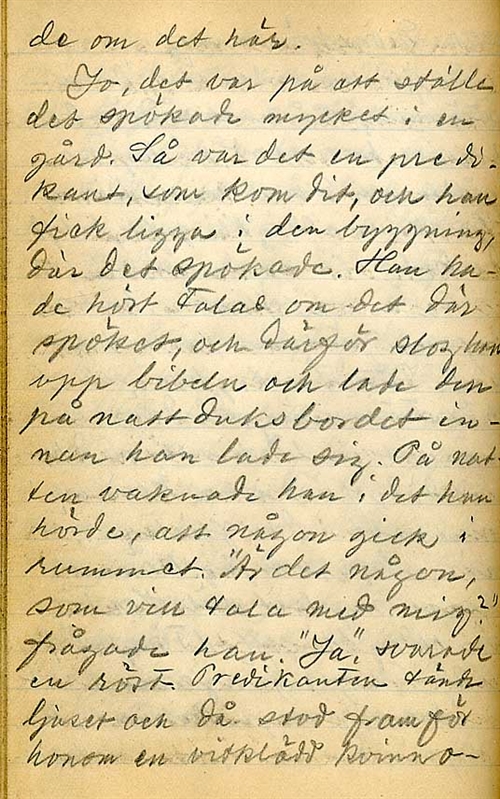 de om det här.
Jo, det var på ett ställe
det spökade mycket i en
gård. Så var det en predi-
kant, som kom dit, och han
fick ligga i den byggning,
där det spökade. Han ha-
de hört talas om det där
spöket, och därför slog han
upp bibeln och lade den
på nattduksbordet in-
nan han lade sig. På nat-
ten vaknade han i det han
hörde, att någon gick i
rummet. "Är det någon,
som vill tala med mig?"
frågade han. "Ja", svarade
en röst. Predikanten tände
ljuset och då stod framför
honom en vitklädd kvinno-